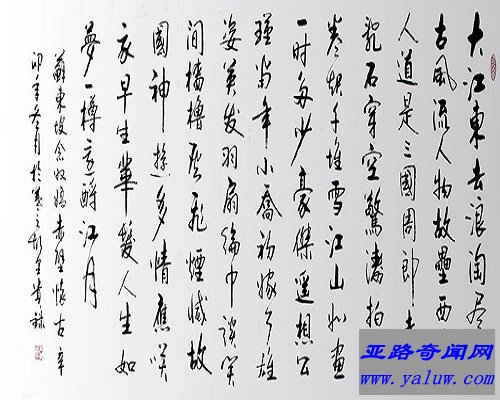 大江東去浪淘尽
古風流人物故壘西
人道是三國周郎赤
亂石穿空驚濤拍
卷起千堆雪江山如畫
一时多少豪傑遥想公
瑾當年小喬初嫁了雄
姿英发羽扇綸巾談笑
間檣櫓灰飛煙滅故
國神遊多情應笑
我早生華髮人生如
夢一樽還酹江月
蘇東坡念奴嬌赤壁懷古辛
卯年冬月於
亚路奇闻网
www.yaluw.com